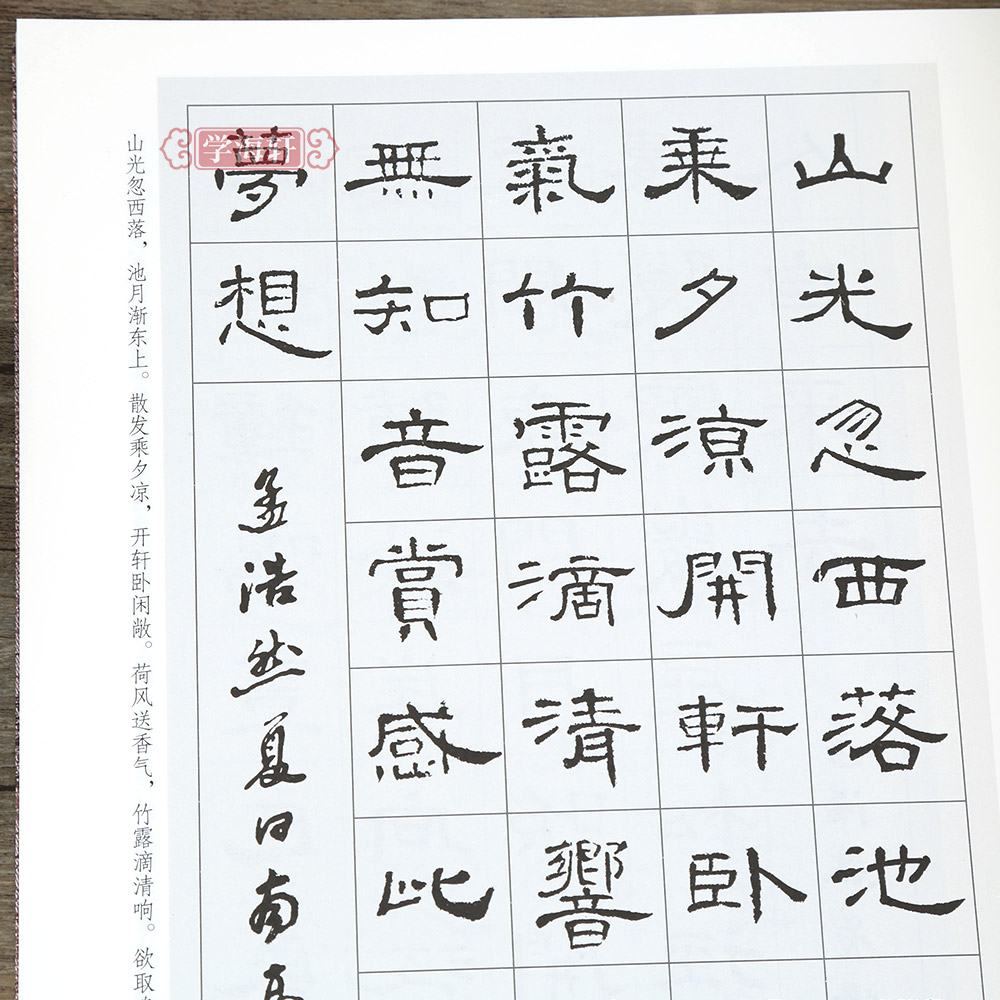 山光忽西落池
乘夕涼開軒卧
氣竹露滴清響
無知音賞感此
夢想
孟浩然夏日南亭
山光忽西落，池月渐东上。散发乘夕凉，开轩卧闲敞。荷风送香气，竹露滴清响。欲取
学海轩